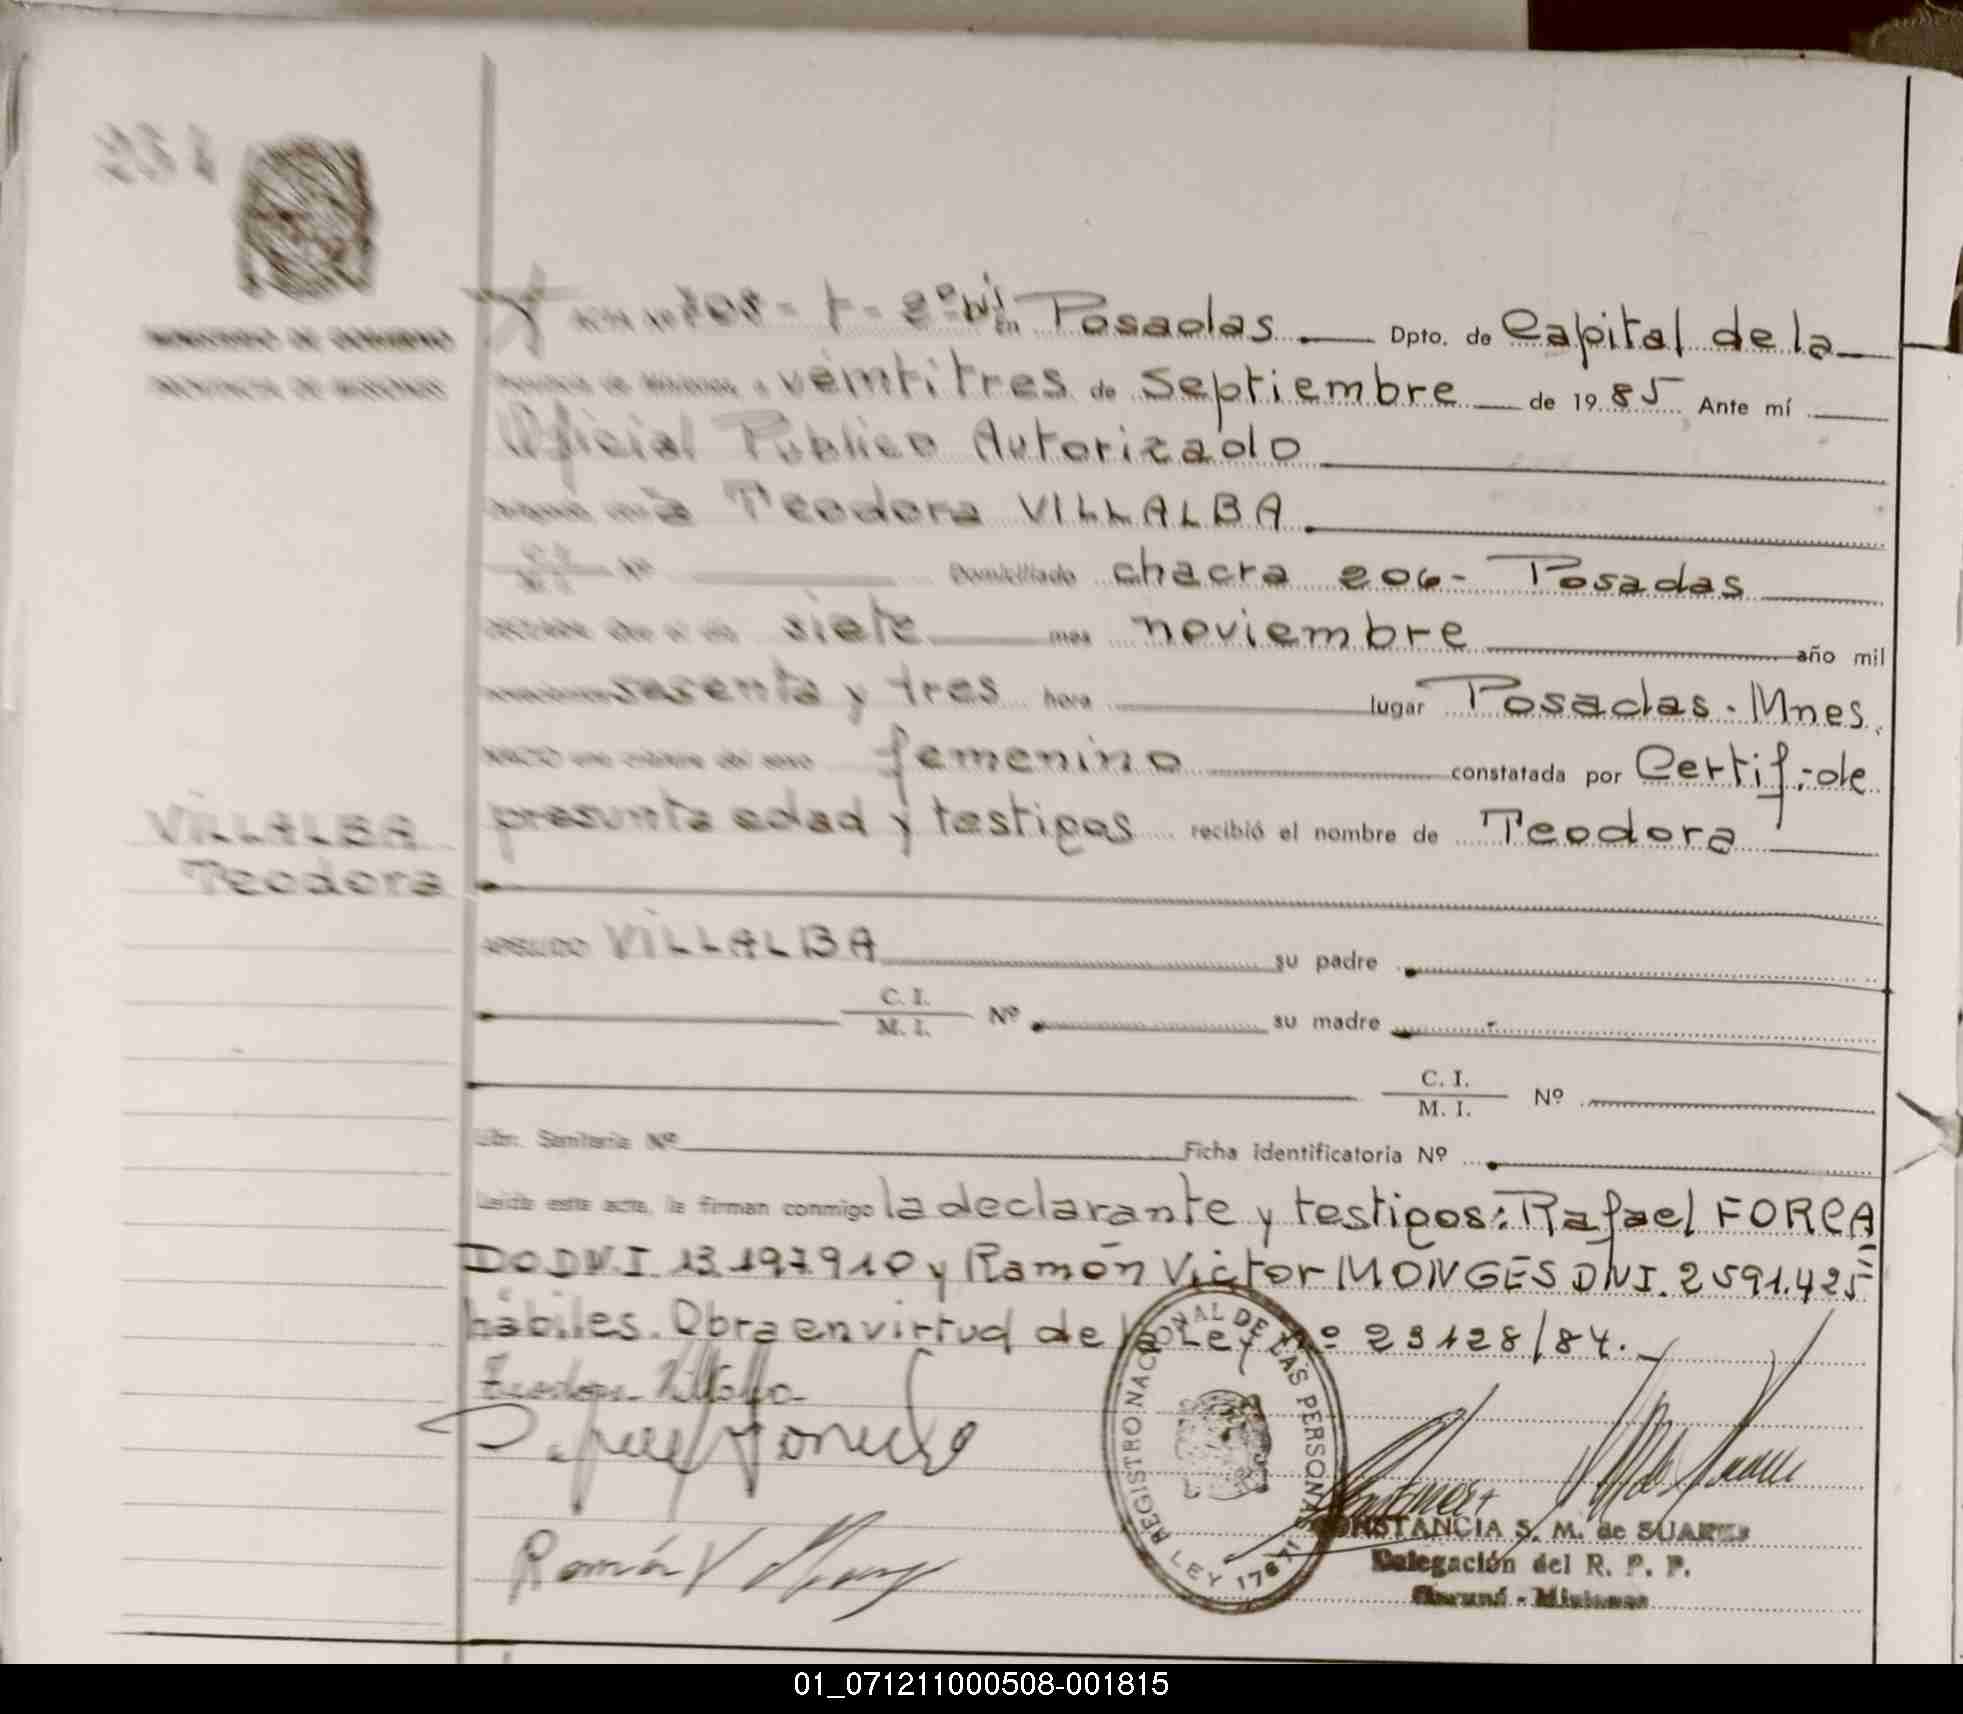 MINISTERIO DE GOBIERNO
PROVINCIA DE MISIONES
En Posadas Dpto. de Capital de la
Provincia de Misiones a veintitres de Septiembre de 1985 Ante mí
Oficial Público Autorizado
Teodora VILLALBA
C. I.
M. I. Nº Domiciliado chacra 206- Posadas
siete mes noviembre año mil
sesenta y tres hora lugar Posadas. Mnes.
femenino constatada por Certif. de
presunta edad y testigos recibió el nombre de Teodora
VILLALBA
Teodora
APELLIDO VILLALBA su padre
C. I.
M. I. Nº su madre
C. I.
M. I. Nº
Libr. Sanitaria Nº Ficha Identificatoria Nº
Leída este acta, la firman conmigo la declarante y testigos: Rafael FORCA
DO D.N.I. 13.197.910 y Ramón Victor MONGES DNI. 2591.425
hábiles. Obra en virtud de la Ley nº 23128/84.
Teodora Villalba
REGISTRO NACIONAL DE LAS PERSONAS
LEY 17671
Ramón V
CONSTANCIA S. M. de SUAREZ
Delegación del R. P. P.
01_071211000508-001815